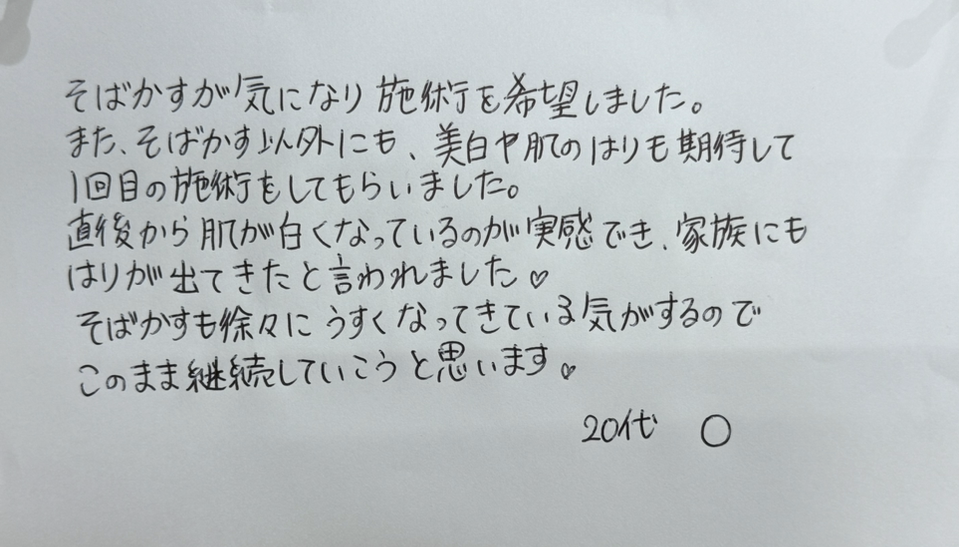 そばかすが気になり施術を希望しました。
また、そばかす以外にも、美白や肌のはりも期待して
1回目の施術をしてもらいました。
直後から肌が白くなっているのが実感でき、家族にも
はりが出てきたと言われました♡
そばかすも徐々にうすくなってきている気がするので
このまま継続していこうと思います。♡
20代 〇